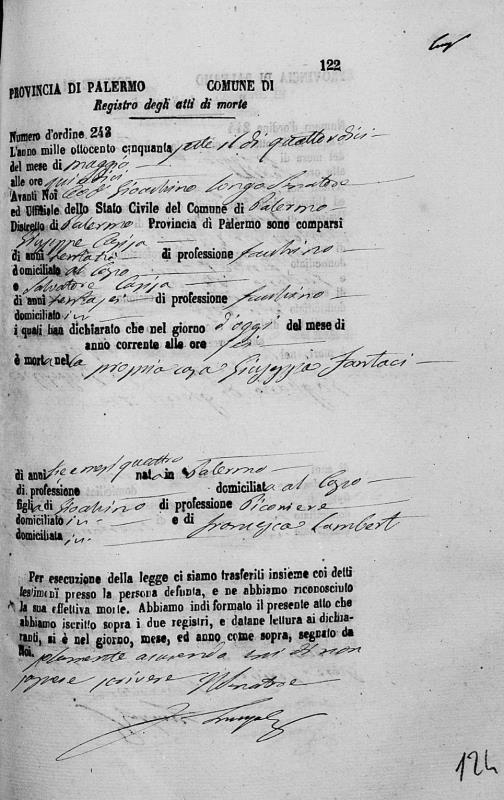 122
PROVINCIA DI PALERMO COMUNE DI
Registro degli atti di morte
Numero d'ordine 243
L'anno mille ottocento cinquanta sette il dì quattordici
del mese di maggio
alle ore quindici
Avanti Noi Gioacchino Longo Senatore
ed Uffiziale dello Stato Civile del Comune di Palermo
Distretto di Palermo Provincia di Palermo sono comparsi
Giuseppe
di anni trentatre di professione facchino
domiciliato al Capo
e Salvatore
di anni trenta sei di professione facchino
domiciliato ivi
i quali han dichiarato che nel giorno d'oggi del mese di
anno corrente alle ore
è morta nella propria casa Giuseppa Fantaci
di anni tre e mesi quattro nata in Palermo
di professione domiciliata al Capo
figlia di Gioachino di professione Piconiere
domiciliato ivi e di Francesca Lambert
domiciliata ivi
Per esecuzione della legge ci siamo trasferiti insieme coi detti
testimonî presso la persona defunta, e ne abbiamo riconosciuto
la sua effettiva morte. Abbiamo indi formato il presente atto che
abbiamo iscritto sopra i due registri, e datane lettura ai dichia-
ranti, si è nel giorno, mese, ed anno come sopra, segnato da
Noi. avendo essi detto non
sapere scrivere Il Senatore
124